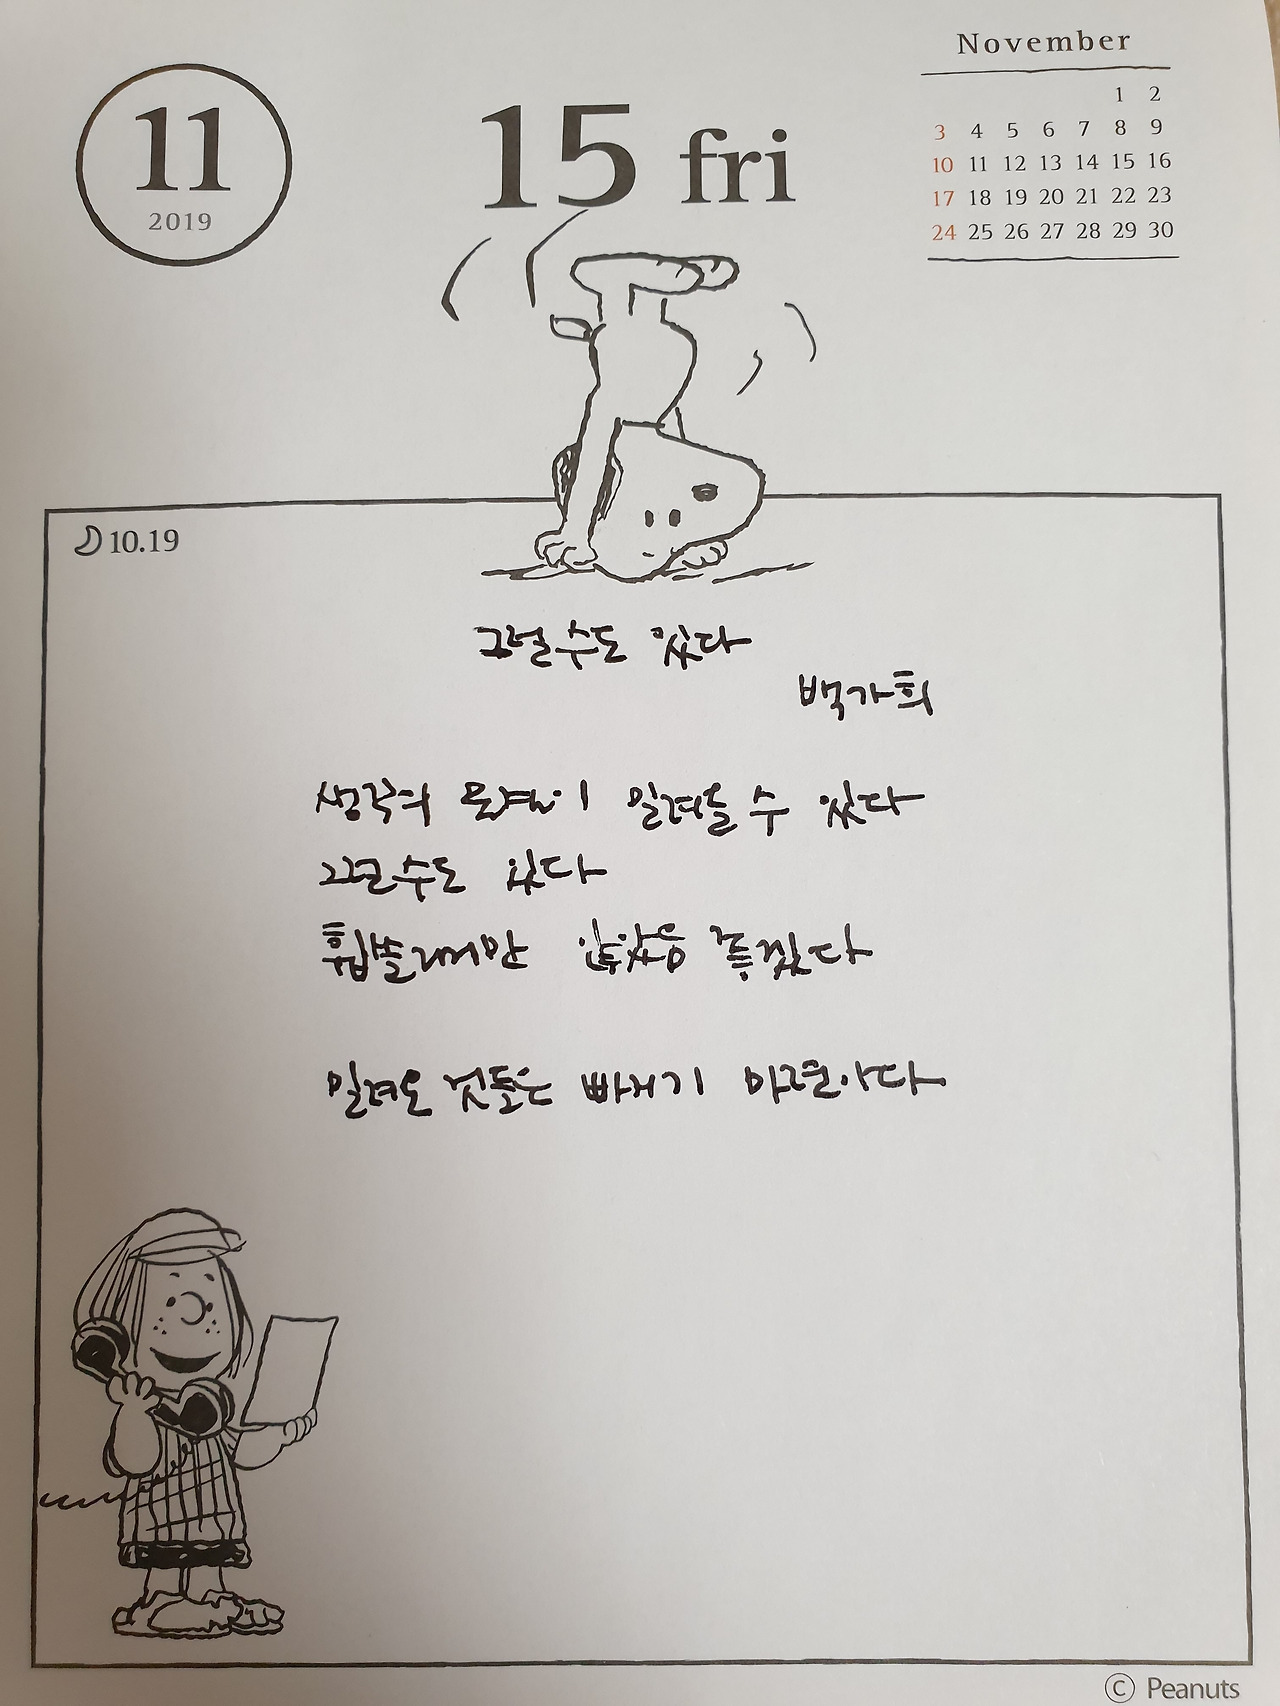 November
11
2019
15 fri
1 2
3 4 5 6 7 8 9
10 11 12 13 14 15 16
17 18 19 20 21 22 23
24 25 26 27 28 29 30
10.19
그럴 수도 있다
백가희
생각의 파도가 밀려올 수 있다
그럴 수도 있다
휩쓸리지만 않았음 좋겠다
밀려온 것들은 빠지기 마련이다
© Peanuts